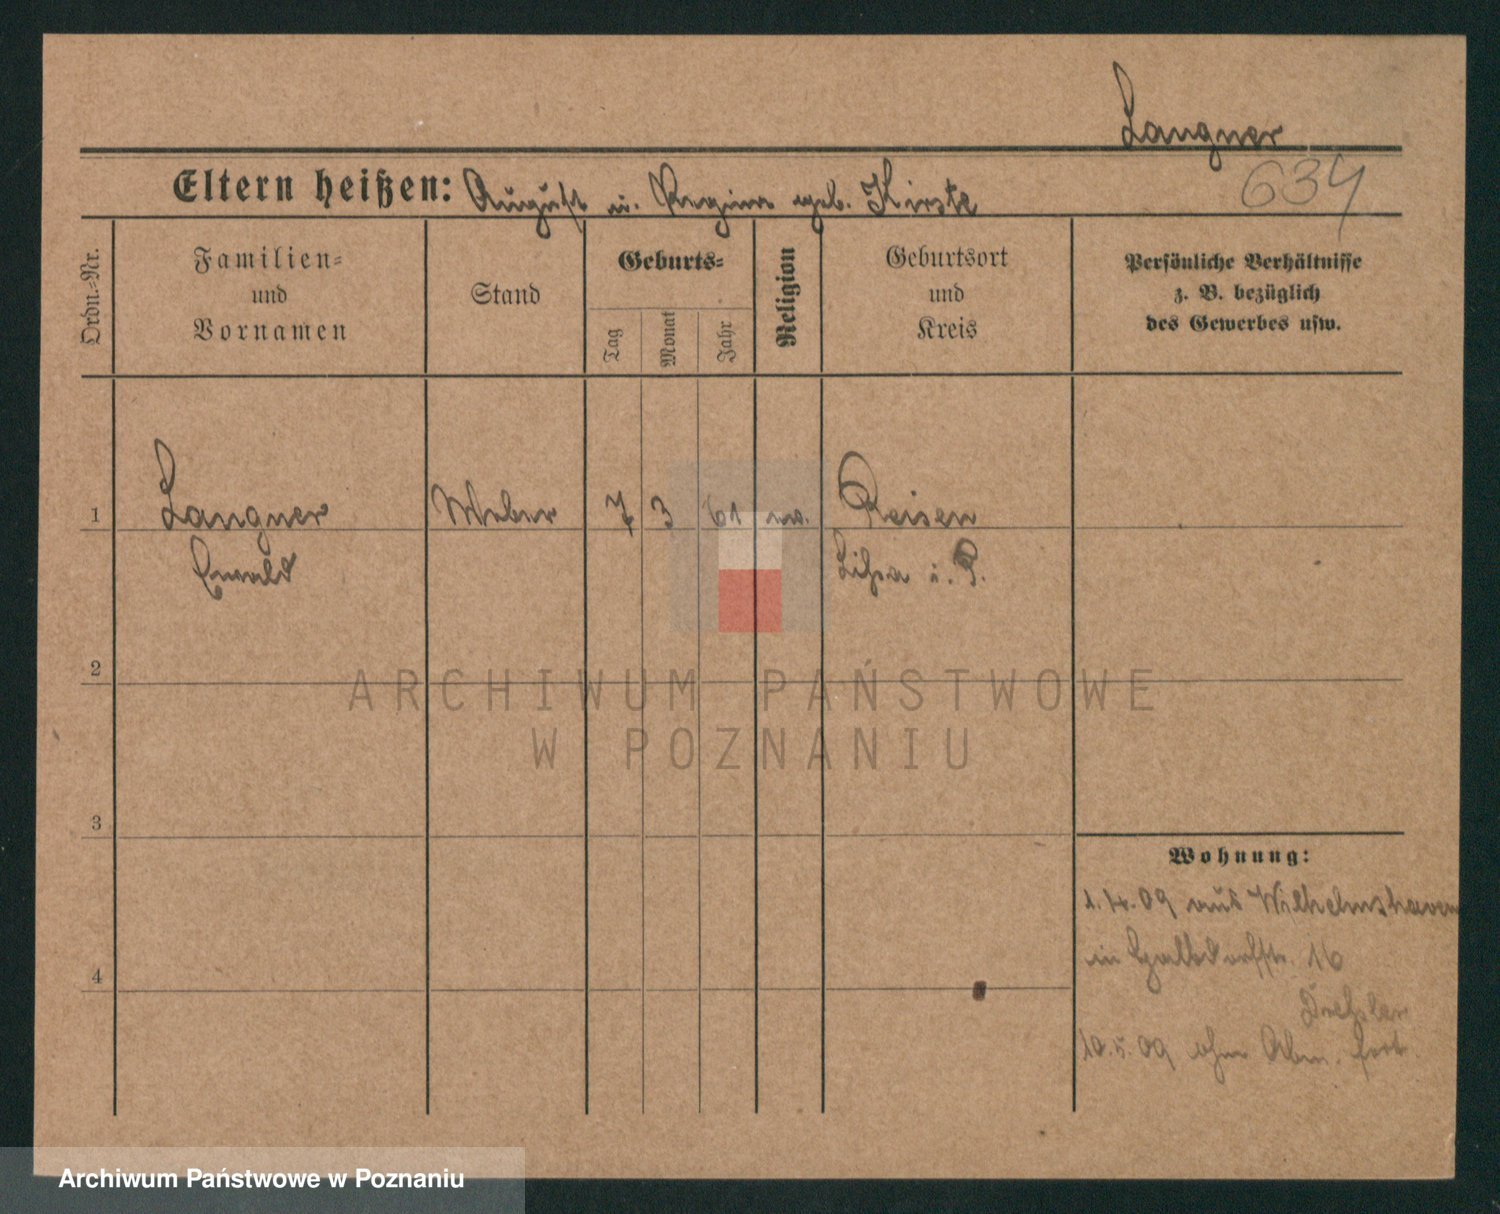 Langner
634
Eltern heißen: August u. Regina geb. Kirste
Ordn.=Nr.
Familien=
und
Vornamen
Stand
Geburts=
Tag
Monat
Jahr
Religion
Geburtsort
und
Kreis
Persönliche Verhältnisse
z. B. bezüglich
des Gewerbes usw.
1
Langner Weber 7 3 61 ev. Reisen
Ewald Lissa i. P.
2
ARCHIWUM PAŃSTWOWE
W POZNANIU
3
Wohnung:
1.4.09 aus Wilhelmshaven
in 16
Drehsler
4
10.5.09 ohne Abm. fort.
Archiwum Państwowe w Poznaniu